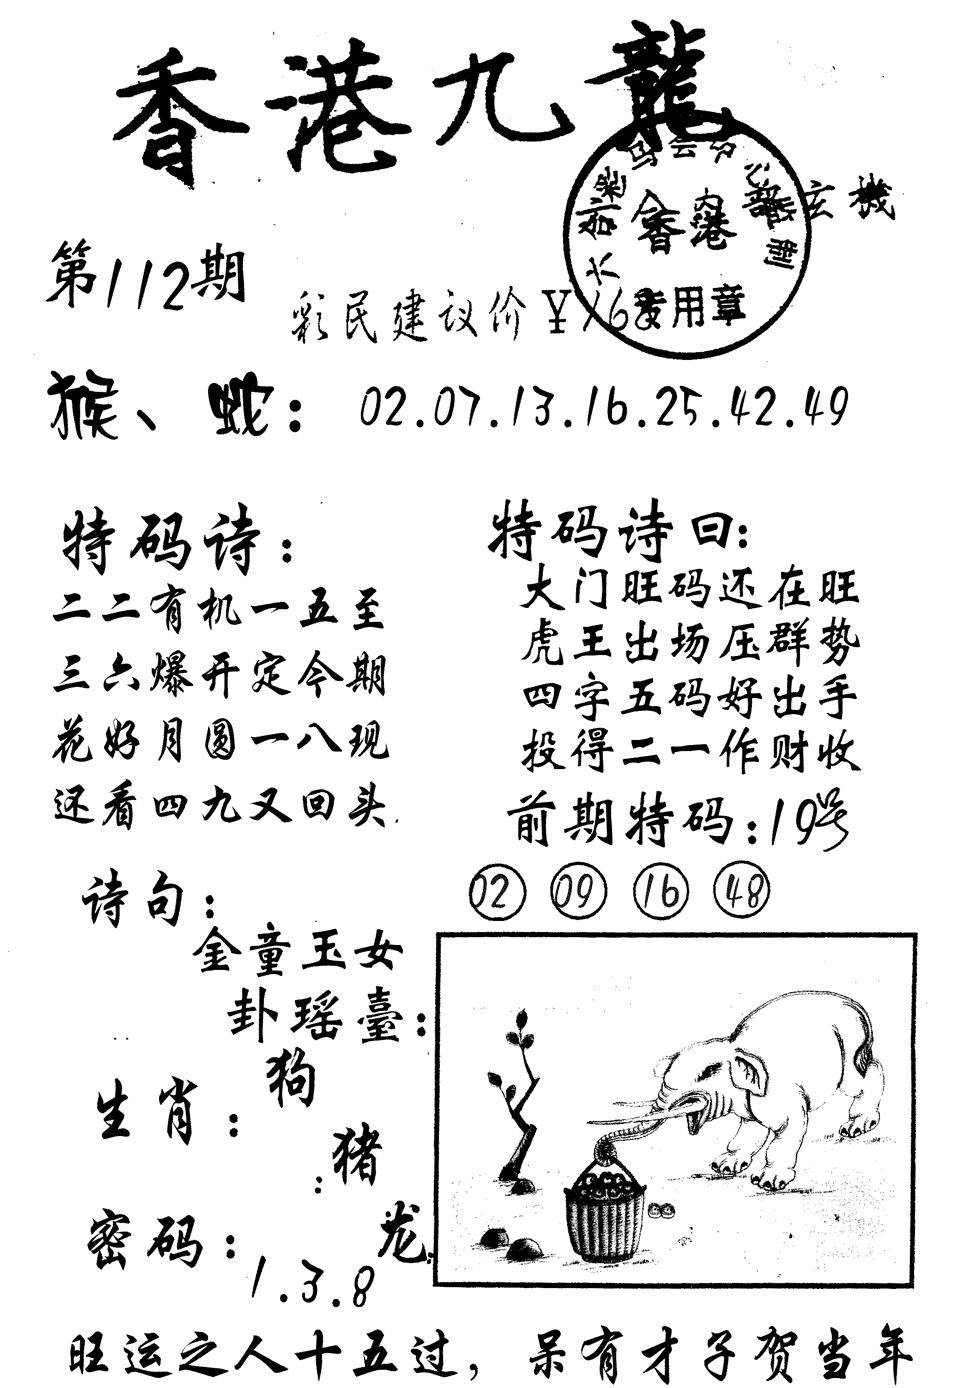 香港九龍
玄機
香港
专用章
第112期
彩民建议价￥168
猴、蛇：02.07.13.16.25.42.49
特码诗：
二二有机一五至
三六爆开定今期
花好月圆一八现
还看四九又回头
特码诗曰：
大门旺码还在旺
虎王出场压群势
四字五码好出手
投得二一作财收
前期特码：19号
02 09 16 48
诗句：
金童玉女
卦瑶臺：
生肖：狗
猪
龙
密码：1.3.8
旺运之人十五过，呆有才子贺当年